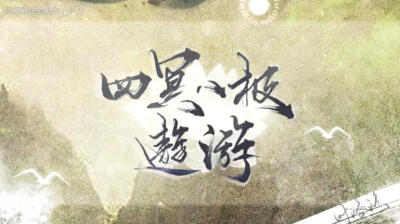 四冥八极
遨游